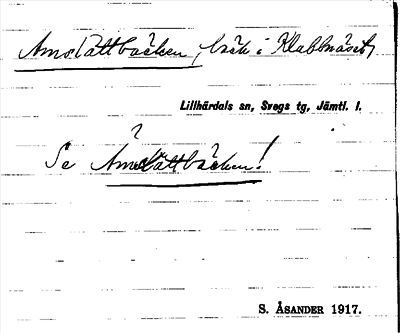 Amslättbäcken, bäck i Klabbnäset,
Lillhärdals sn, Svegs tg, Jämtl. l.
Se Åmslättbäcken!
S. ÅSANDER 1917.